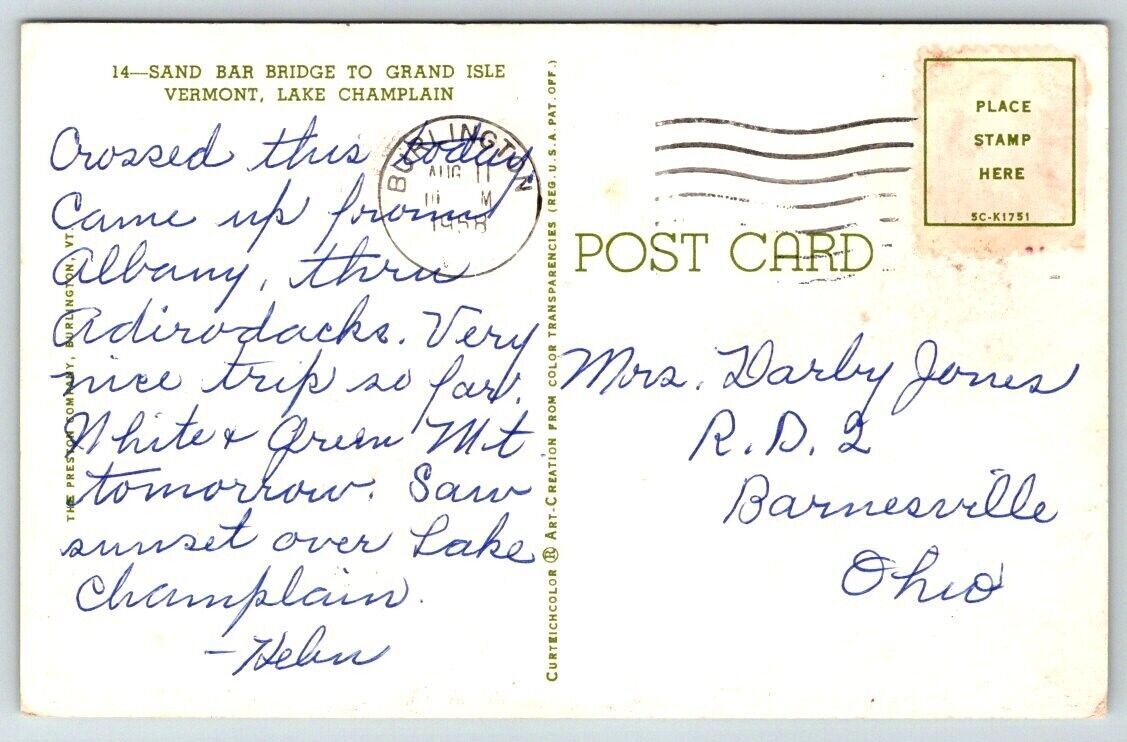 14—SAND BAR BRIDGE TO GRAND ISLE
VERMONT, LAKE CHAMPLAIN
Crossed this today.
Came up from
Albany, thru
Adirodacks. Very
nice trip so far.
White & Green Mt
tomorrow. Saw
sunset over Lake
Champlain.
- Helen
THE PRESTON COMPANY, BURLINGTON, VT.
BURLINGTON
AUG 11
M
1958
CURTEICHCOLOR ® ART-CREATION FROM COLOR TRANSPARENCIES (REG. U.S.A. PAT. OFF.)
POST CARD
PLACE
STAMP
HERE
5C-K1751
Mrs. Darby Jones
R.D. 2
Barnesville
Ohio